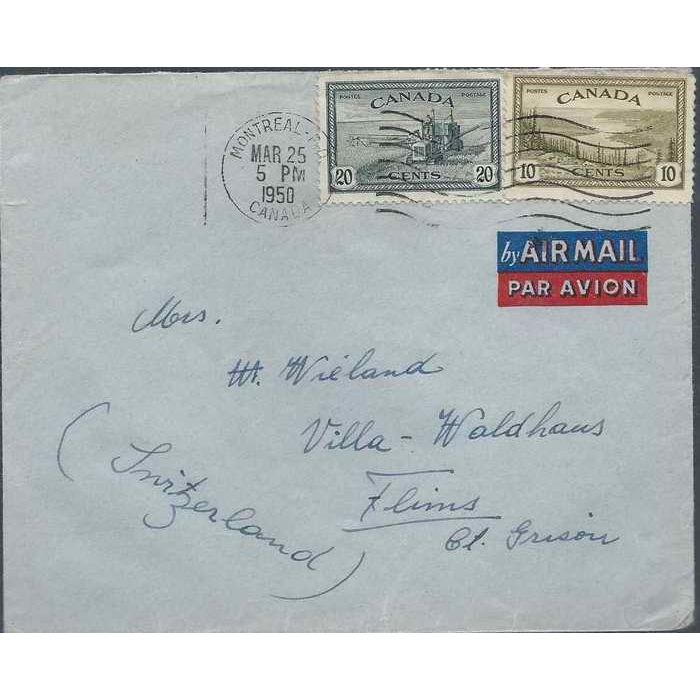 POSTES POSTAGE
CANADA
20 CENTS 20
POSTES POSTAGE
CANADA
10 CENTS 10
MONTREAL
MAR 25
5 PM
1950
CANADA
by AIR MAIL
PAR AVION
Mrs.
Wieland
Villa - Waldhaus
Flims
Ct. Grison
(Switzerland)